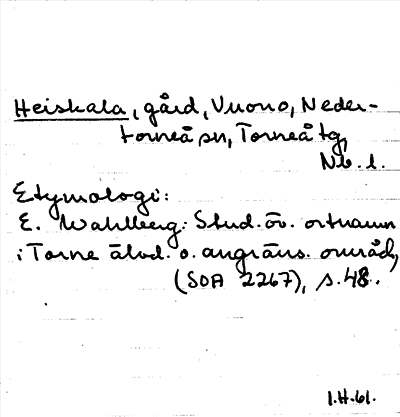 Heiskala, gård, Vuono, Neder-
torneå sn, Torneå tg,
Nb. l.
Etymologi:
E. Wahlberg: Stud. öv. ortnamn
i Torne älvd. o. angräns. områd.,
(SOA 2267), s. 48.
1.H.61.